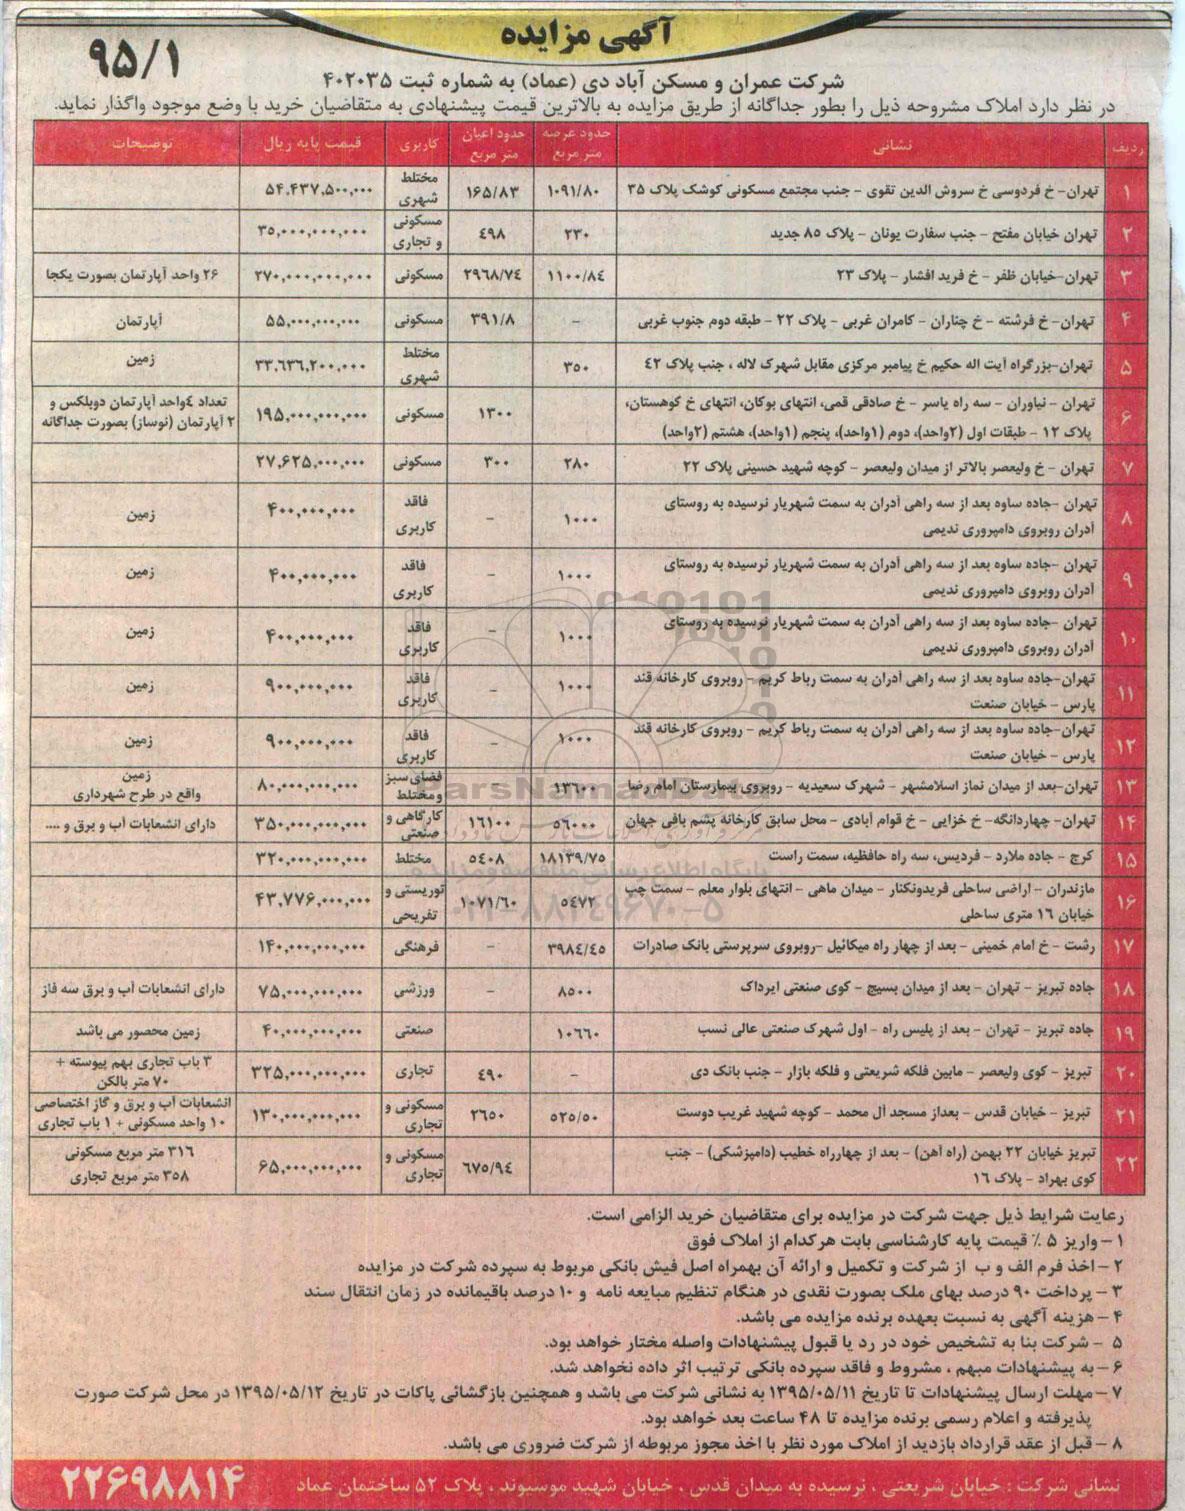 آگهی مزایده
۹۵/۱
شرکت عمران و مسکن آباد دی (عماد) به شماره ثبت ۴۰۲۰۳۵
در نظر دارد املاک مشروحه ذیل را بطور جداگانه از طریق مزایده به بالاترین قیمت پیشنهادی به متقاضیان خرید با وضع موجود واگذار نماید.
ردیف نشانی حدود عرصه متر مربع حدود اعیان متر مربع کاربری قیمت پایه ریال توضیحات
۱ تهران- خ فردوسی خ سروش الدین تقوی - جنب مجتمع مسکونی کوشک پلاک ۳۵ ۱۰۹۱/۸۰ ۱۶۵/۸۳ مختلط شهری ۵۴,۴۳۷,۵۰۰,۰۰۰
۲ تهران خیابان مفتح - جنب سفارت یونان - پلاک ۸۵ جدید ۲۳۰ ۴۹۸ مسکونی و تجاری ۳۵,۰۰۰,۰۰۰,۰۰۰
۳ تهران-خیابان ظفر - خ فرید افشار - پلاک ۲۳ ۱۱۰۰/۸۴ ۲۹۶۸/۷۴ مسکونی ۲۷۰,۰۰۰,۰۰۰,۰۰۰ ۲۶ واحد آپارتمان بصورت یکجا
۴ تهران- خ فرشته - خ چناران - کامران غربی - پلاک ۲۲ - طبقه دوم جنوب غربی - ۳۹۱/۸ مسکونی ۵۵,۰۰۰,۰۰۰,۰۰۰ آپارتمان
۵ تهران-بزرگراه آیت اله حکیم خ پیامبر مرکزی مقابل شهرک لاله ، جنب پلاک ۴۲ ۳۵۰ مختلط شهری ۳۳,۶۳۶,۲۰۰,۰۰۰ زمین
۶ تهران - نیاوران - سه راه یاسر - خ صادقی قمی، انتهای بوکان، انتهای خ کوهستان،
پلاک ۱۲ - طبقات اول (۲واحد)، دوم (۱واحد)، پنجم (۱واحد)، هشتم (۲واحد) ۱۳۰۰ مسکونی ۱۹۵,۰۰۰,۰۰۰,۰۰۰ تعداد ۴واحد آپارتمان دوبلکس و ۲ آپارتمان (نوساز) بصورت جداگانه
۷ تهران - خ ولیعصر بالاتر از میدان ولیعصر - کوچه شهید حسینی پلاک ۲۲ ۲۸۰ ۳۰۰ مسکونی ۲۷,۶۲۵,۰۰۰,۰۰۰
۸ تهران -جاده ساوه بعد از سه راهی آدران به سمت شهریار نرسیده به روستای
آدران روبروی دامپروری ندیمی ۱۰۰۰ - فاقد کاربری ۴۰۰,۰۰۰,۰۰۰ زمین
۹ تهران -جاده ساوه بعد از سه راهی آدران به سمت شهریار نرسیده به روستای
آدران روبروی دامپروری ندیمی ۱۰۰۰ - فاقد کاربری ۴۰۰,۰۰۰,۰۰۰ زمین
۱۰ تهران -جاده ساوه بعد از سه راهی آدران به سمت شهریار نرسیده به روستای
آدران روبروی دامپروری ندیمی ۱۰۰۰ - فاقد کاربری ۴۰۰,۰۰۰,۰۰۰ زمین
۱۱ تهران-جاده ساوه بعد از سه راهی آدران به سمت رباط کریم - روبروی کارخانه قند
پارس - خیابان صنعت ۱۰۰۰ - فاقد کاربری ۹۰۰,۰۰۰,۰۰۰ زمین
۱۲ تهران-جاده ساوه بعد از سه راهی آدران به سمت رباط کریم - روبروی کارخانه قند
پارس - خیابان صنعت ۱۰۰۰ - فاقد کاربری ۹۰۰,۰۰۰,۰۰۰ زمین
۱۳ تهران-بعد از میدان نماز اسلامشهر - شهرک سعیدیه - روبروی بیمارستان امام رضا ۱۳۶۰۰ فضای سبز و مختلط ۸۰,۰۰۰,۰۰۰,۰۰۰ زمین واقع در طرح شهرداری
۱۴ تهران- چهاردانگه- خ خزایی - خ قوام آبادی - محل سابق کارخانه پشم بافی جهان ۵۶۰۰۰ ۱۶۱۰۰ کارگاهی و صنعتی ۳۵۰,۰۰۰,۰۰۰,۰۰۰ دارای انشعابات آب و برق و ....
۱۵ کرج - جاده ملارد - فردیس، سه راه حافظیه، سمت راست ۱۸۱۳۹/۷۵ ۵۴۰۸ مختلط ۳۲۰,۰۰۰,۰۰۰,۰۰۰
۱۶ مازندران - اراضی ساحلی فریدونکنار - میدان ماهی - انتهای بلوار معلم - سمت چپ
خیابان ۱۶ متری ساحلی ۵۴۷۲ ۱۰۷۱/۶۰ توریستی و تفریحی ۴۳,۷۷۶,۰۰۰,۰۰۰
۱۷ رشت - خ امام خمینی - بعد از چهار راه میکائیل -روبروی سرپرستی بانک صادرات ۳۹۸۴/۴۵ - فرهنگی ۱۴۰,۰۰۰,۰۰۰,۰۰۰
۱۸ جاده تبریز - تهران - بعد از میدان بسیج - کوی صنعتی ایرداک ۸۵۰۰ - ورزشی ۷۵,۰۰۰,۰۰۰,۰۰۰ دارای انشعابات آب و برق سه فاز
۱۹ جاده تبریز - تهران - بعد از پلیس راه - اول شهرک صنعتی عالی نسب ۱۰۶۶۰ صنعتی ۴۰,۰۰۰,۰۰۰,۰۰۰ زمین محصور می باشد
۲۰ تبریز - کوی ولیعصر - مابین فلکه شریعتی و فلکه بازار - جنب بانک دی - ۴۹۰ تجاری ۳۲۵,۰۰۰,۰۰۰,۰۰۰ ۳ باب تجاری بهم پیوسته + ۷۰ متر بالکن
۲۱ تبریز - خیابان قدس - بعداز مسجد آل محمد - کوچه شهید غریب دوست ۵۲۵/۵۰ ۲۶۵۰ مسکونی و تجاری ۱۳۰,۰۰۰,۰۰۰,۰۰۰ انشعابات آب و برق و گاز اختصاصی ۱۰ واحد مسکونی + ۱ باب تجاری
۲۲ تبریز خیابان ۲۲ بهمن (راه آهن) - بعد از چهارراه خطیب (دامپزشکی) - جنب
کوی بهراد - پلاک ۱۶ ۶۷۵/۹۴ مسکونی و تجاری ۶۵,۰۰۰,۰۰۰,۰۰۰ ۳۱۶ متر مربع مسکونی ۳۵۸ متر مربع تجاری
رعایت شرایط ذیل جهت شرکت در مزایده برای متقاضیان خرید الزامی است.
۱ - واریز ۵ ٪ قیمت پایه کارشناسی بابت هرکدام از املاک فوق
۲ - اخذ فرم الف و ب از شرکت و تکمیل و ارائه آن بهمراه اصل فیش بانکی مربوط به سپرده شرکت در مزایده
۳ - پرداخت ۹۰ درصد بهای ملک بصورت نقدی در هنگام تنظیم مبایعه نامه و ۱۰ درصد باقیمانده در زمان انتقال سند
۴ - هزینه آگهی به نسبت بعهده برنده مزایده می باشد.
۵ - شرکت بنا به تشخیص خود در رد یا قبول پیشنهادات واصله مختار خواهد بود.
۶ - به پیشنهادات مبهم ، مشروط و فاقد سپرده بانکی ترتیب اثر داده نخواهد شد.
۷ - مهلت ارسال پیشنهادات تا تاریخ ۱۳۹۵/۰۵/۱۱ به نشانی شرکت می باشد و همچنین بازگشائی پاکات در تاریخ ۱۳۹۵/۰۵/۱۲ در محل شرکت صورت
پذیرفته و اعلام رسمی برنده مزایده تا ۴۸ ساعت بعد خواهد بود.
۸ - قبل از عقد قرارداد بازدید از املاک مورد نظر با اخذ مجوز مربوطه از شرکت ضروری می باشد.
نشانی شرکت : خیابان شریعتی ، نرسیده به میدان قدس ، خیابان شهید موسیوند ، پلاک ۵۲ ساختمان عماد
۲۲۶۹۸۸۱۴
ParsNamadData
پایگاه اطلاع رسانی مناقصه و مزایده
۰۲۱-۸۸۳۴۹۶۷۰-۵